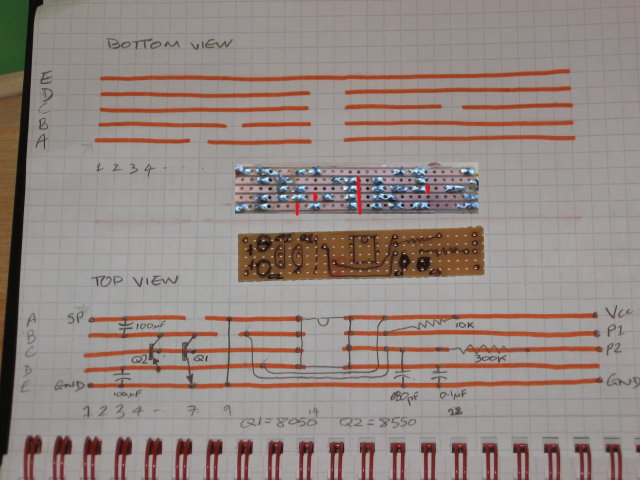 BOTTOM VIEW
E
D
C
B
A
1 2 3 4 - .
TOP VIEW
A SP Vcc
100nF 10K
B P1
C Q2 Q1 P2
300K
D
E GND GND
100nF 680pF 0.1µF
1 2 3 4 - 7 9 14 22
Q1=8050 Q2=8550